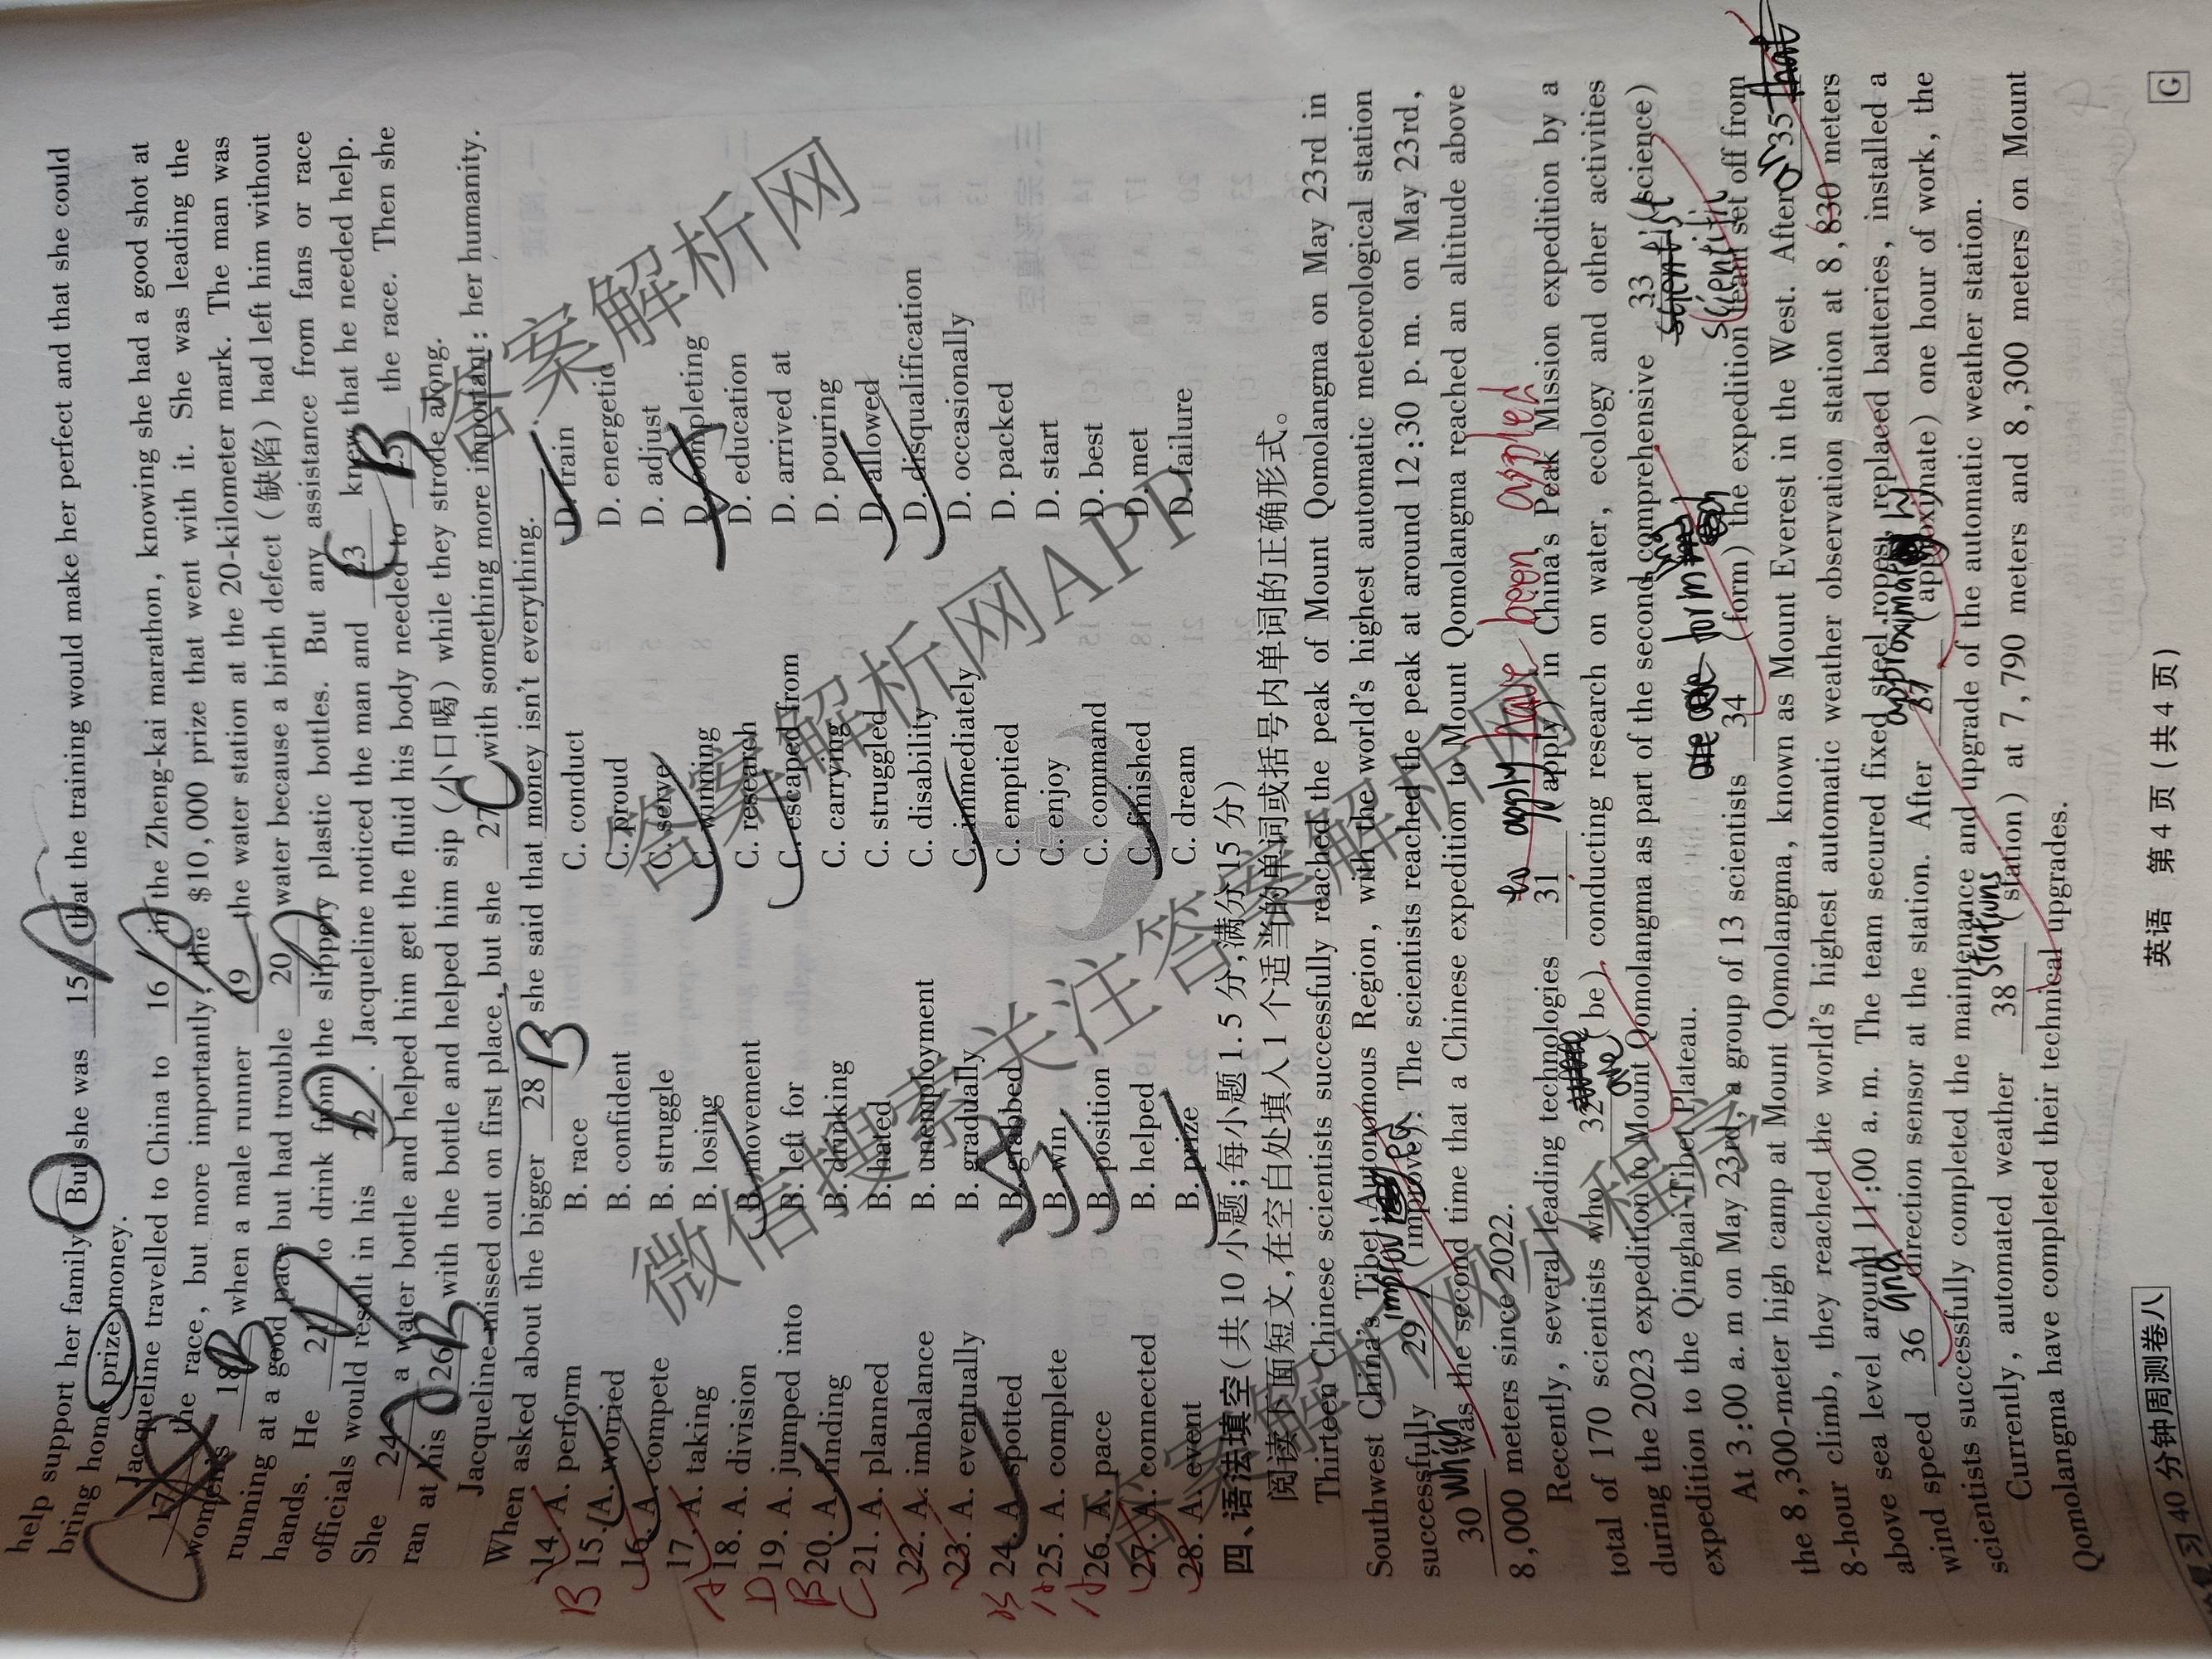 help support her family. But she was 15 that the training would make her perfect and that she could
bring home prize money.
Jacqueline travelled to China to 16 in the Zheng-kai marathon, knowing she had a good shot at
17 the race, but more importantly, the $10,000 prize that went with it. She was leading the
women's 18 B when a male runner 19 the water station at the 20-kilometer mark. The man was
running at a good pace but had trouble 20 water because a birth defect (缺陷) had left him without
hands. He 21 to drink from the slippery plastic bottles. But any assistance from fans or race
officials would result in his 22. Jacqueline noticed the man and 23 knew that he needed help.
She 24 a water bottle and helped him get the fluid his body needed to 25 B the race. Then she
ran at his 26 B with the bottle and helped him sip (小口喝) while they strode along.
Jacqueline missed out on first place, but she 27 C with something more important: her humanity.
When asked about the bigger 28 B she said that money isn't everything.
14. A. perform B. race C. conduct D. train
B 15. A. worried B. confident C. proud D. energetic
16. A. compete B. struggle C. serve D. adjust
A 17. A. taking B. losing C. winning D. completing
18. A. division B. movement C. research D. education
D 19. A. jumped into B. left for C. escaped from D. arrived at
B 20. A. finding B. drinking C. carrying D. pouring
C 21. A. planned B. hated C. struggled D. allowed
22. A. imbalance B. unemployment C. disability D. disqualification
23. A. eventually B. gradually C. immediately D. occasionally
24. A. spotted B. grabbed C. emptied D. packed
A 25. A. complete B. win C. enjoy D. start
A 26. A. pace B. position C. command D. best
27. A. connected B. helped C. finished D. met
28. A. event B. prize C. dream D. failure
四、语法填空(共 10 小题;每小题 1.5 分,满分 15 分)
阅读下面短文,在空白处填入 1 个适当的单词或括号内单词的正确形式。
Thirteen Chinese scientists successfully reached the peak of Mount Qomolangma on May 23rd in
Southwest China's Tibet Autonomous Region, with the world's highest automatic meteorological station
successfully 29 improved (improve). The scientists reached the peak at around 12:30 p. m. on May 23rd,
30 which was the second time that a Chinese expedition to Mount Qomolangma reached an altitude above
8,000 meters since 2022.
to apply have been applied
Recently, several leading technologies 31 (apply) in China's Peak Mission expedition by a
total of 170 scientists who 32 are (be) conducting research on water, ecology and other activities
during the 2023 expedition to Mount Qomolangma as part of the second comprehensive 33 scientific (science)
expedition to the Qinghai-Tibet Plateau.
At 3:00 a. m on May 23rd, a group of 13 scientists 34 forming (form) the expedition team set off from
the 8,300-meter high camp at Mount Qomolangma, known as Mount Everest in the West. After 35 an
8-hour climb, they reached the world's highest automatic weather observation station at 8,830 meters
above sea level around 11:00 a. m. The team secured fixed steel ropes, replaced batteries, installed a
wind speed 36 and direction sensor at the station. After 37 approximately (approximate) one hour of work, the
scientists successfully completed the maintenance and upgrade of the automatic weather station.
Currently, automated weather 38 stations (station) at 7,790 meters and 8,300 meters on Mount
Qomolangma have completed their technical upgrades.
复习 40 分钟周测卷八
英语 第 4 页(共 4 页)
G
答案解析网
微信搜索关注答案解析网APP